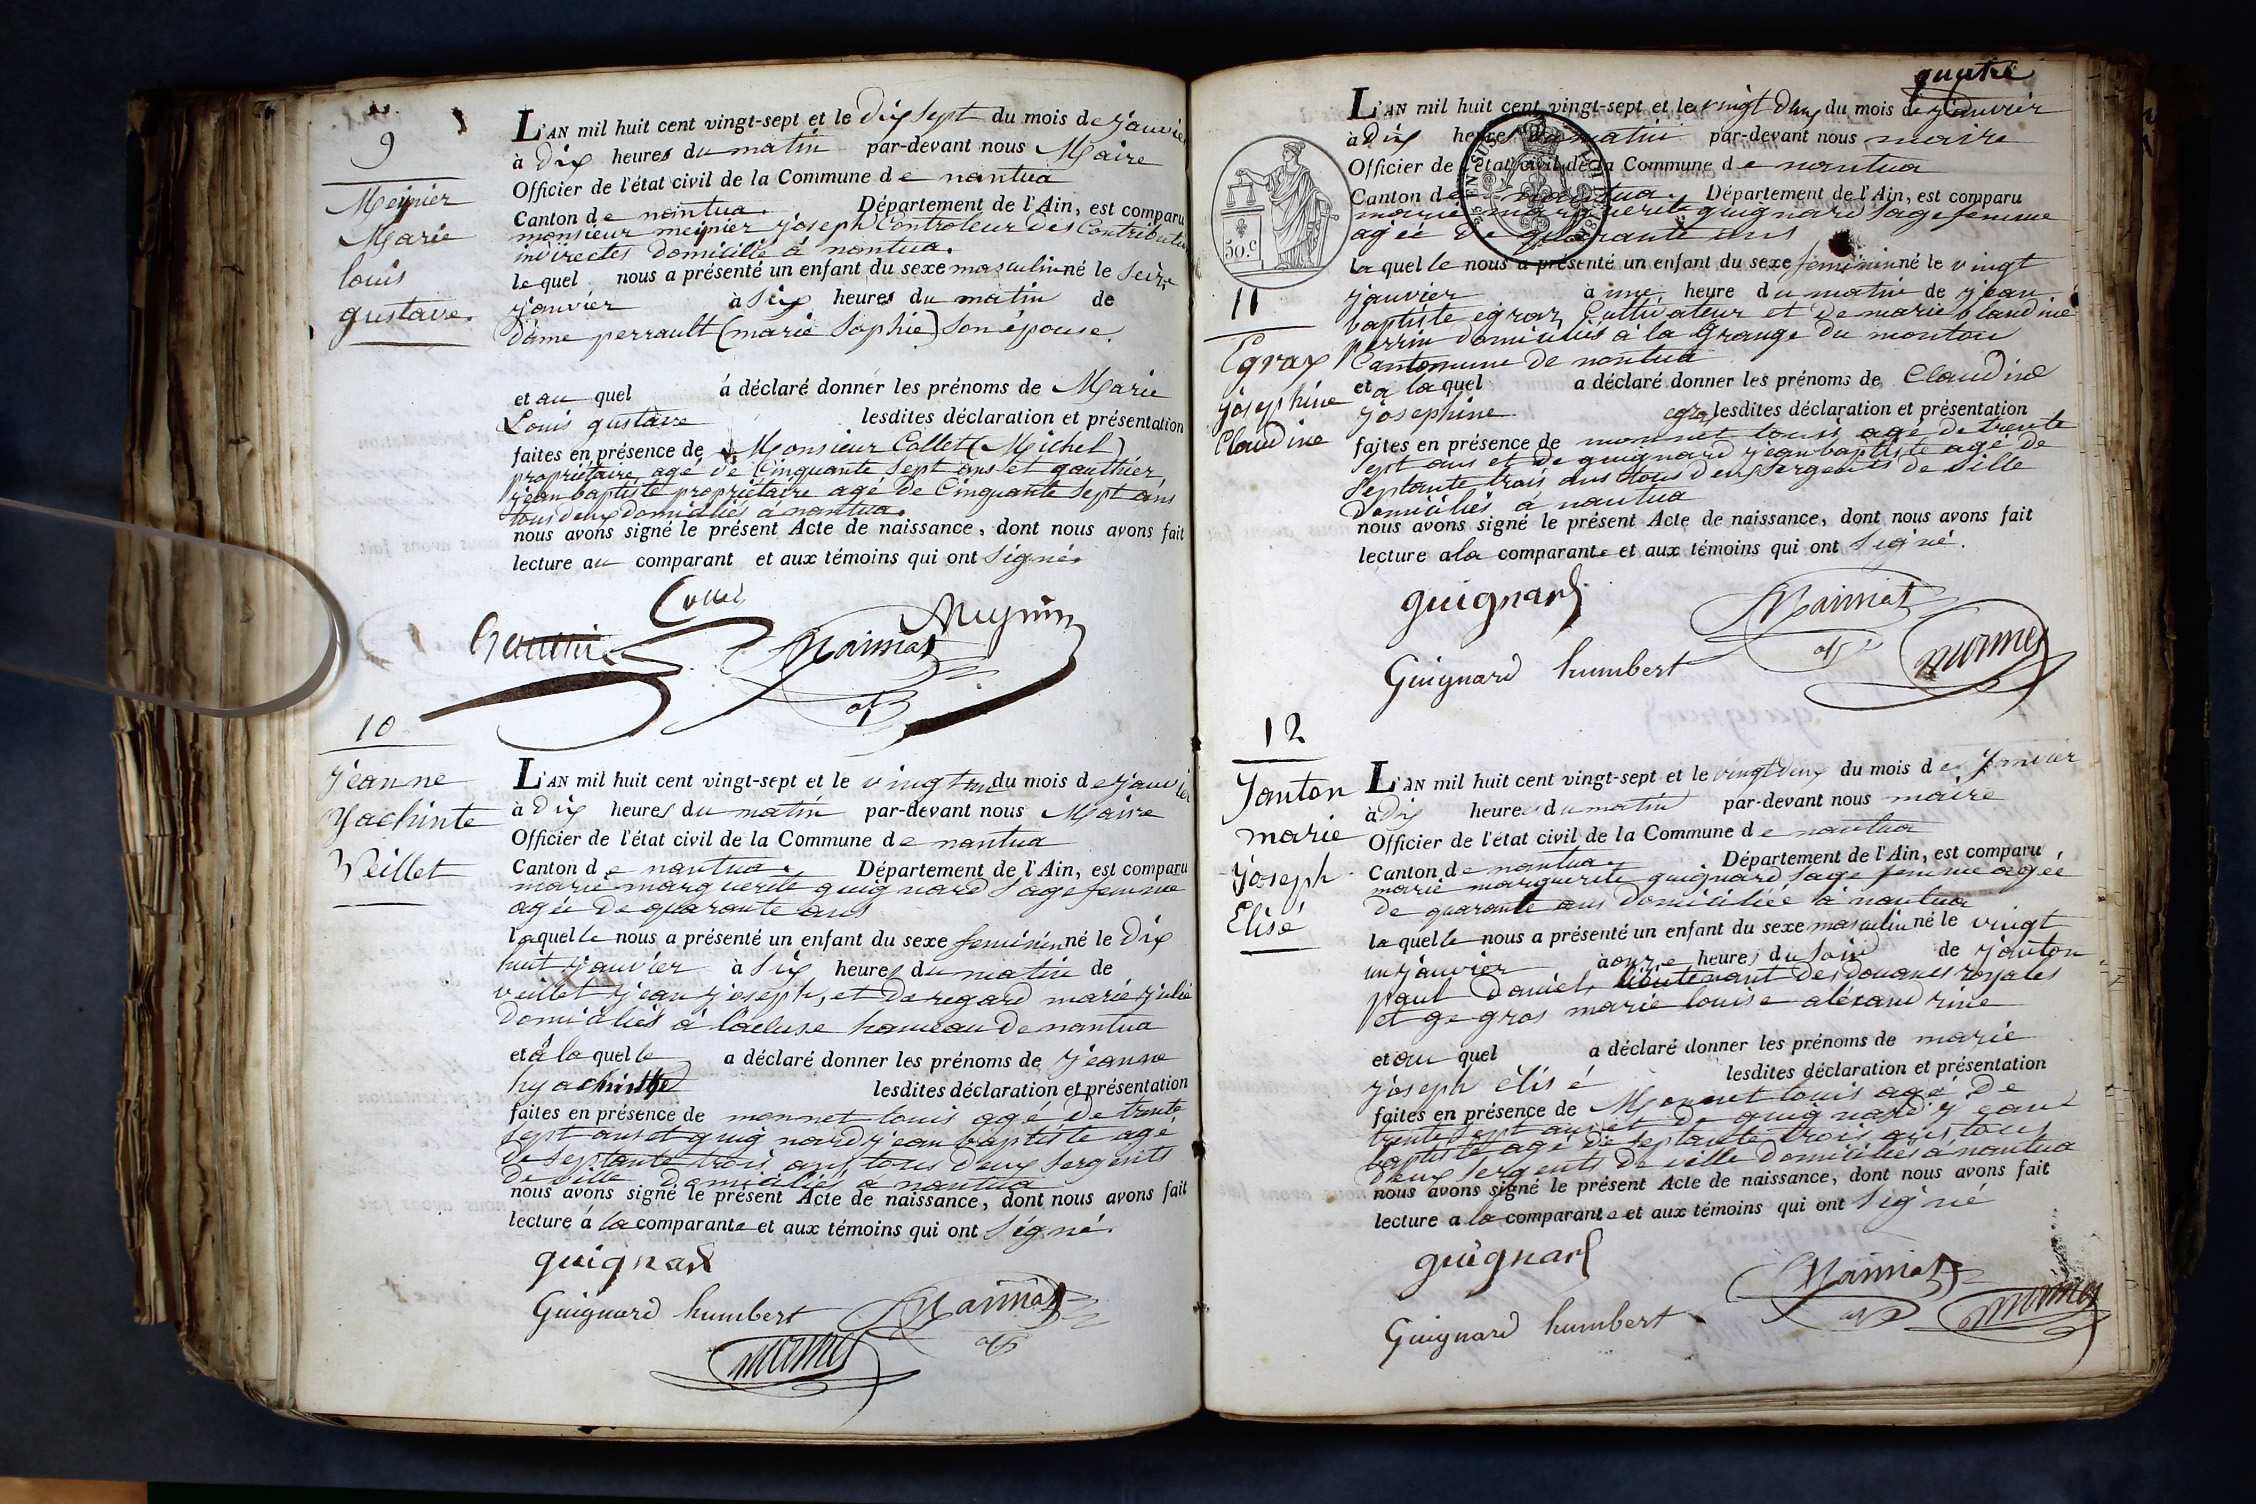 9
Meynier
Marie
louis
gustave.
L'AN mil huit cent vingt-sept et le Dix sept du mois de janvier
à Dix heures du matin par-devant nous Maire
Officier de l'état civil de la Commune de nantua
Canton de nantua. Département de l'Ain, est comparu
monsieur meynier joseph Controleur des Contributions
indirectes domicilié à nantua.
lequel nous a présenté un enfant du sexe masculin né le seize
janvier à six heures du matin de
Dame perrault (marie Sophie) son épouse.
et au quel à déclaré donner les prénoms de Marie
Louis gustave lesdites déclaration et présentation
faites en présence de Monsieur Collet (Michel)
propriétaire agé de Cinquante Sept ans et gauthier
jean baptiste propriétaire agé de Cinquante Sept ans
tous deux domiciliés à nantua.
nous avons signé le présent Acte de naissance, dont nous avons fait
lecture au comparant et aux témoins qui ont signé.
Collet
Meynier
10
Jeanne
Yachinte
Veillet
L'AN mil huit cent vingt-sept et le vingt un du mois de janvier
à Dix heures du matin par-devant nous Maire
Officier de l'état civil de la Commune de nantua
Canton de nantua. Département de l'Ain, est comparu
marie marguerite guignard Sage femme
agée de quarante ans
laquelle nous a présenté un enfant du sexe feminin né le Dix
huit janvier à six heures du matin de
veillet jean joseph, et de regard marie julie
Domiciliés à lacluse hameau de nantua
et à la quelle a déclaré donner les prénoms de jeanne
hyachinthe lesdites déclaration et présentation
faites en présence de monnet louis agé de trente
sept ans et guignard jean baptiste agé
de septante trois ans tous deux sergents
de ville domiciliés a nantua
nous avons signé le présent Acte de naissance, dont nous avons fait
lecture à la comparante et aux témoins qui ont signé.
guignard
Guignard humbert
monnet
quatre
50.c
11
Egraz
josephine
Claudine
L'AN mil huit cent vingt-sept et le vingt deux du mois de janvier
à dix heures du matin par-devant nous maire
Officier de l'état civil de la Commune de nantua
Canton de nantua. Département de l'Ain, est comparu
marie marguerite guignard Sage femme
agée de quarante ans
laquelle nous a présenté un enfant du sexe feminin né le vingt
janvier à une heure du matin de jean
baptiste egraz Cultivateur et de marie blandine
perrin domiciliés à la Grange du
de nantua
et à la quel a déclaré donner les prénoms de Claudine
josephine lesdites déclaration et présentation
faites en présence de monnet louis agé de trente
sept ans et de guignard jean baptiste agé de
septante trois ans tous deux sergents de ville
domiciliés à nantua
nous avons signé le présent Acte de naissance, dont nous avons fait
lecture a la comparante et aux témoins qui ont signé.
guignard
Guignard humbert
monnet
12
Janton
marie
joseph
Elisé
L'AN mil huit cent vingt-sept et le vingt deux du mois de Janvier
à dix heures du matin par-devant nous maire
Officier de l'état civil de la Commune de nantua
Canton de nantua. Département de l'Ain, est comparu
marie marguerite guignard Sage femme agée
de quarante ans domiciliée à nantua
laquelle nous a présenté un enfant du sexe masculin né le vingt
un janvier à onze heures du soir de janton
paul Daniel, lieutenant des douanes royales
et de gros marie louise aléxandrine
et au quel a déclaré donner les prénoms de marie
joseph élisé lesdites déclaration et présentation
faites en présence de Monnet louis agé de
trente sept ans et de guignard jean
baptiste agé de septante trois ans tous
deux sergents de ville domiciliés à nantua
nous avons signé le présent Acte de naissance, dont nous avons fait
lecture a la comparante et aux témoins qui ont signé
guignard
Guignard humbert
monnet